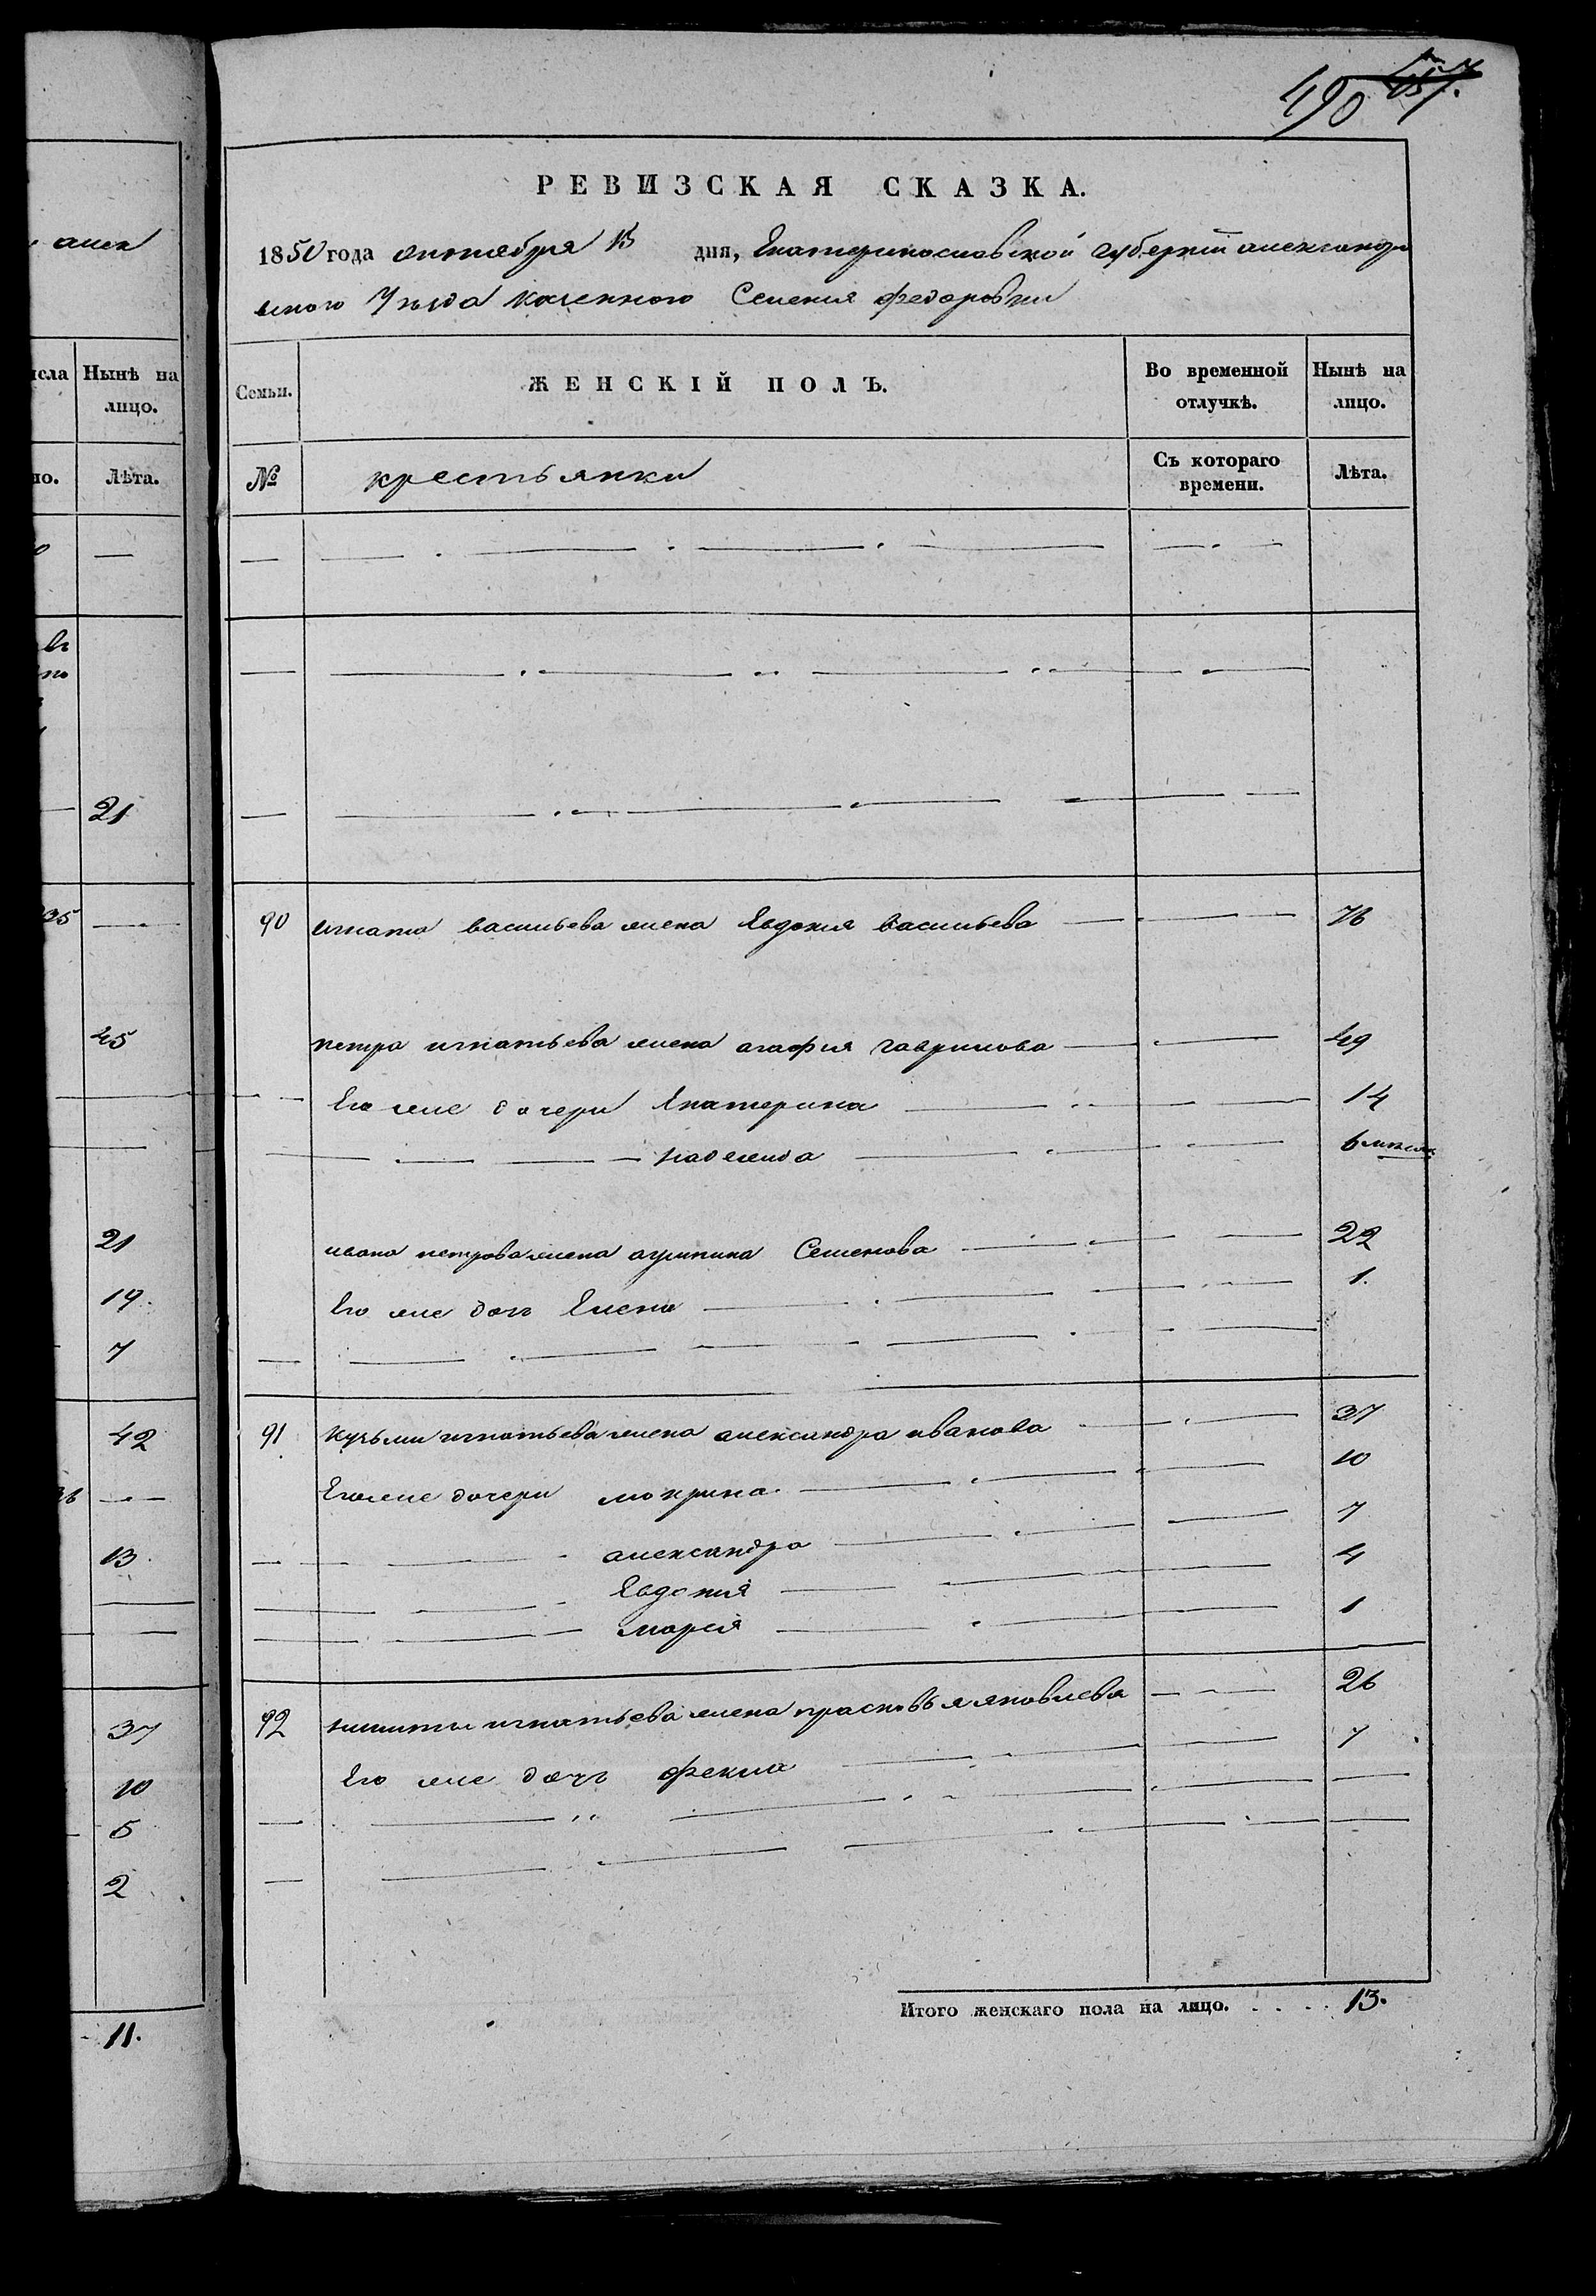 490 457.
РЕВИЗСКАЯ СКАЗКА.
1850 года октября 15 дня, Екатеринославской губернии александров
скаго Уѣзда казеннаго Селения федоровки
Семьи. ЖЕНСКІЙ ПОЛЪ. Во временной отлучкѣ. Нынѣ на лицо.
№ крестьянки Съ котораго времени. Лѣта.
90 игната васильева жена Евдокия васильева 76
петра игнатьева жена агафия гаврилова 49
Его же дочери Екатерина 14
надежда 6 мѣсяц
ивана петрова жена агрипина Семенова 22
Его же дочь Елена 1.
91 кузьми игнатьева жена александра иванова 37
Его же дочери мокрина 10
александра 7
Евдокия 4
мария 1
92 никиты игнатьева жена прасковья яковлева 26
Его же дочь фекла 7
Итого женскаго пола на лицо. . . . . 13.
алек
исла Нынѣ на лицо.
но. Лѣта.
въ
21
835
45
21
19.
7
42
13.
37
10
5
2
11.